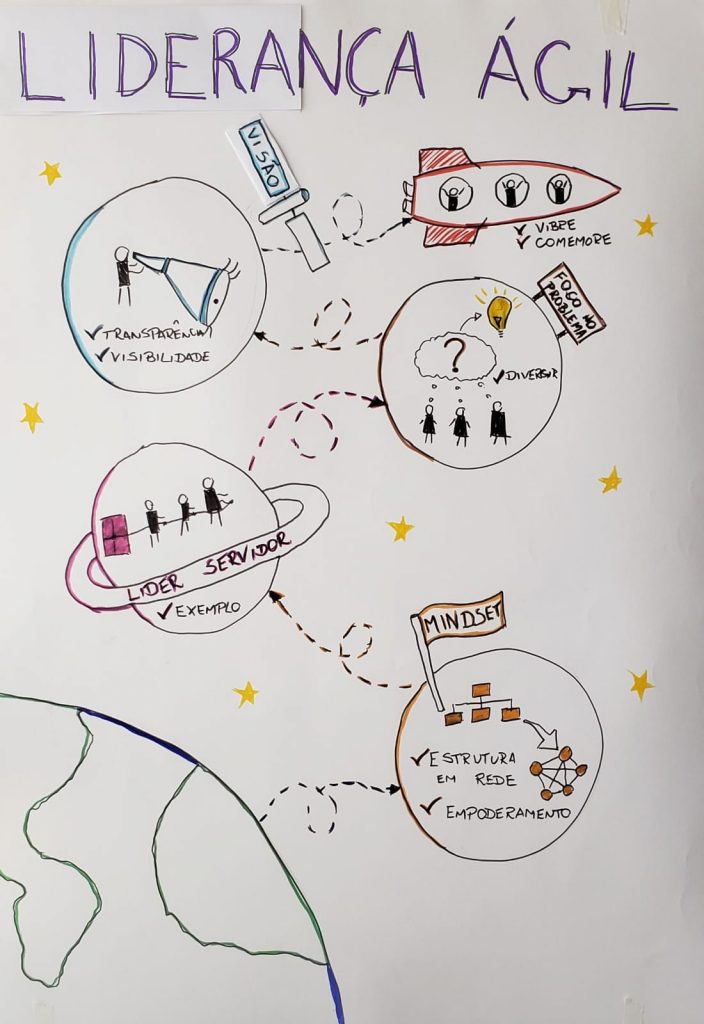 LIDERANÇA ÁGIL
VISÃO
✓ VIBRE
✓ COMEMORE
FOCO NO
PROBLEMA
✓ TRANSPARÊNCIA
✓ VISIBILIDADE
?
✓ DIVERGIR
LIDER SERVIDOR
✓ EXEMPLO
MINDSET
✓ ESTRUTURA
EM REDE
✓ EMPODERAMENTO